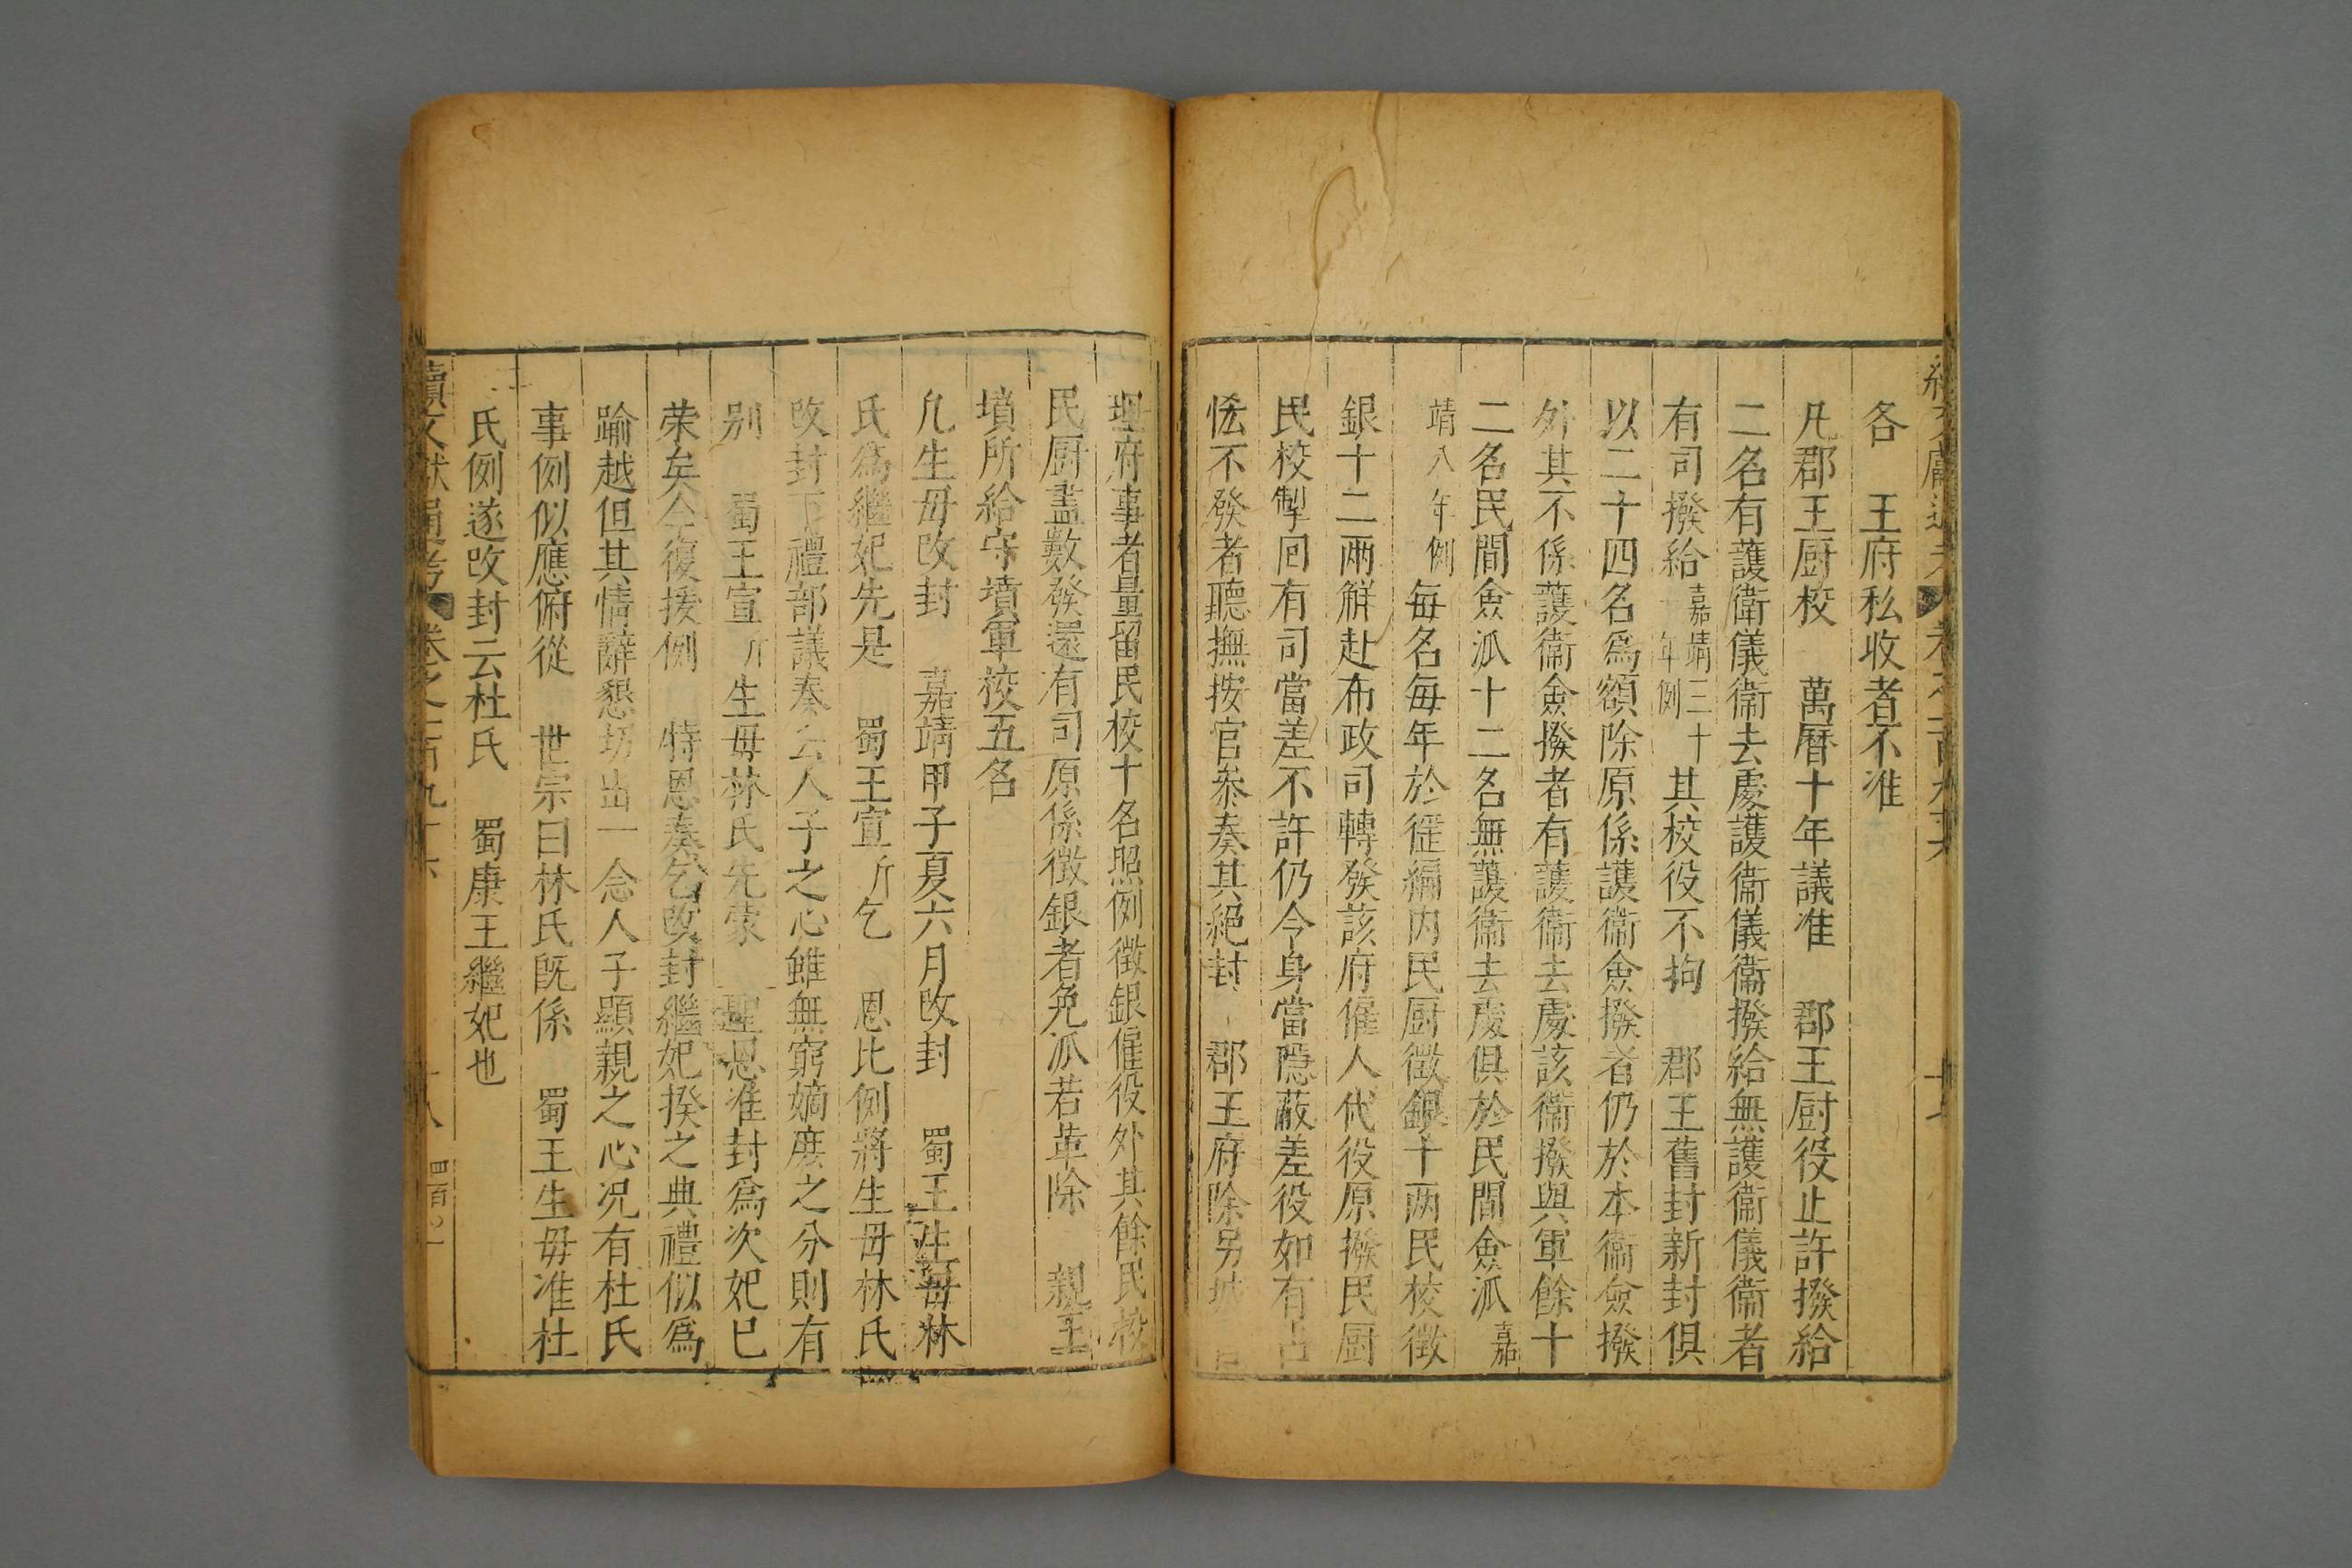 各　王府私收者不准
凡郡王厨校　萬曆十年議准　郡王厨役止許撥給
二名有護衛儀衛去處護衛儀衛撥給無護衛儀衛者
有司撥給嘉靖三十年例其校役不拘　郡王舊封新封俱
以二十四名爲額除原係護衛僉撥者仍於本衛僉撥
外其不係護衛僉撥者有護衛去處該衛撥與軍餘十
二名民間僉派十二名無護衛去處俱於民間僉派嘉
靖八年例每名每年於徭編内民厨徵銀十两民校徵
銀十二兩觧赴布政司轉發該府僱人代役原撥民厨
民校掣回有司當差不許仍令身當隱蔽差役如有占
恡不發者聽撫按官叅奏其絕封　郡王府除另城
理府事者量留民校十名照例徵銀僱役外其餘民校
民厨盡數發還有司原係徵銀者免派若革除　親王
墳所給守墳軍校五名
凡生母改封　嘉靖甲子夏六月改封　蜀王生母林
氏爲繼妃先是　蜀王宣圻乞　恩比例將生母林氏
改封下禮部議奏云人子之心雖無窮嫡庶之分則有
别　蜀王宣圻生母林氏先蒙　聖恩准封爲次妃已
荣矣今復援例　特恩奏乞改封繼妃揆之典禮似爲
踰越但其情辭懇切出一念人子顯親之心况有杜氏
事例似應俯從　世宗曰林氏既係　蜀王生母准杜
氏例遂改封云杜氏　蜀康王繼妃也
續文獻通考　卷之一百九十六　十八